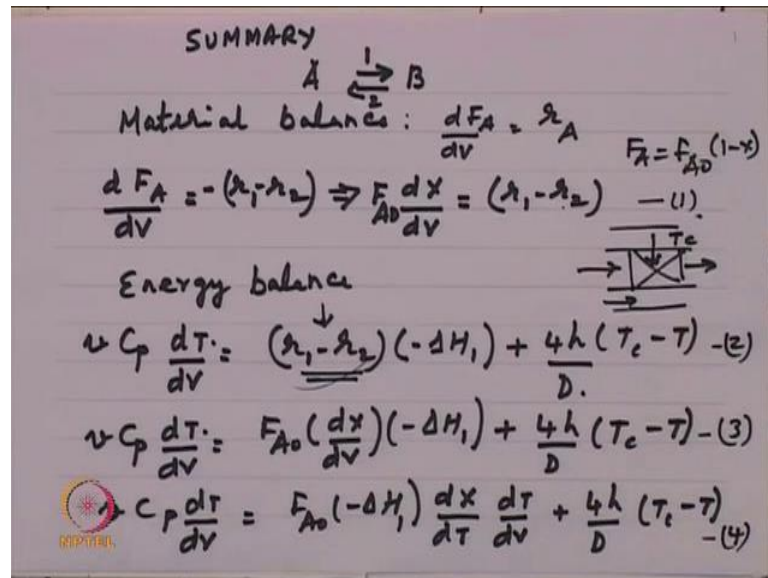 SUMMARY
A ⇌ B
1
2
Material balance: dF_A/dV = r_A
F_A = F_A0 (1-x)
dF_A/dV = -(r_1-r_2) ⇒ F_A0 dx/dV = (r_1-r_2) —(1).
Tc
Energy balance
v Cp dT/dV = (r_1-r_2)(-ΔH_1) + 4h/D. (Tc-T) -(2)
v Cp dT/dV = F_A0 (dx/dV)(-ΔH_1) + 4h/D (Tc-T) -(3)
v Cp dT/dV = F_A0 (-ΔH_1) dx/dT dT/dV + 4h/D (Tc-T) -(4)
NPTEL